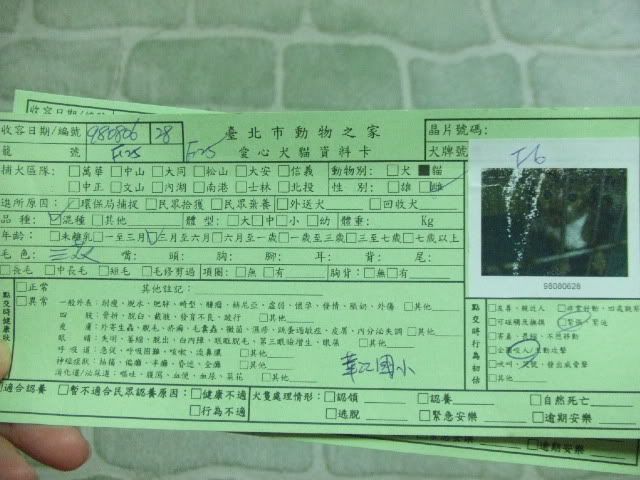 收容日期/編號
收容日期/編號 980806 28 臺北市動物之家 晶片號碼:
籠 號 F125 F125 愛心犬貓資料卡 犬牌號 F6
捕犬區隊: □萬華 □中山 □大同 □松山 □大安 □信義 動物別: □犬 ■貓
□中正 □文山 □內湖 □南港 □士林 □北投 性 別: □雄 □雌
進所原因: □環保局捕捉 □民眾拾獲 □民眾棄養 □外送犬 □回收犬
品 種: □混種 □其他 體 型: □大 □中 □小 □幼 體重: Kg
年齡: □未離乳 □一至三月 □三月至六月 □六月至一歲 □一歲至三歲 □三至七歲 □七歲以上
毛 色: 三 嘴: 頭: 胸: 腳: 耳: 背: 尾:
□長毛 □中長毛 □短毛 □毛修剪過 項圈: □無 □有 胸背: □無 □有
98080628
點交時健康狀 □正常 其他註記:
□異常 一般外表: 削瘦、脫水、肥胖、畸型、腫瘤、赫尼亞、虛弱、懷孕、發情、脹奶、外傷 □其他
四 肢: 骨折、脫臼、截肢、發育不良、跛行 □其他
皮 膚: 外寄生蟲、脫毛、疥癬、毛囊蟲、黴菌、濕疹、跳蚤過敏症、皮屑、內分泌失調 □其他
眼 睛: 失明、萎縮、脫出、白內障、眼瞼脫毛、第三眼瞼增生、眼屎 □其他
呼吸道: 急促、呼吸困難、咳嗽、流鼻膿 □其他
神經症狀: 抽搐、偏癱、半癱、昏迷、全癱 □其他
消化道/泌尿道: 嘔吐、腹瀉、血便、血尿、菜花 □其他
華江國小
點交時行為初估 □友善、親近人
□可碰觸及撫摸 □緊張、緊迫
□害羞、恐懼、不想移動
□企圖咬人/主動攻擊
□吠叫、低吼、發出威脅聲
□其他
□適合認養 □暫不適合民眾認養原因: □健康不適 犬隻處理情形: □認領 □認養 □自然死亡
□行為不適 □逃脫 □緊急安樂 □逾期安樂
□逾期安樂